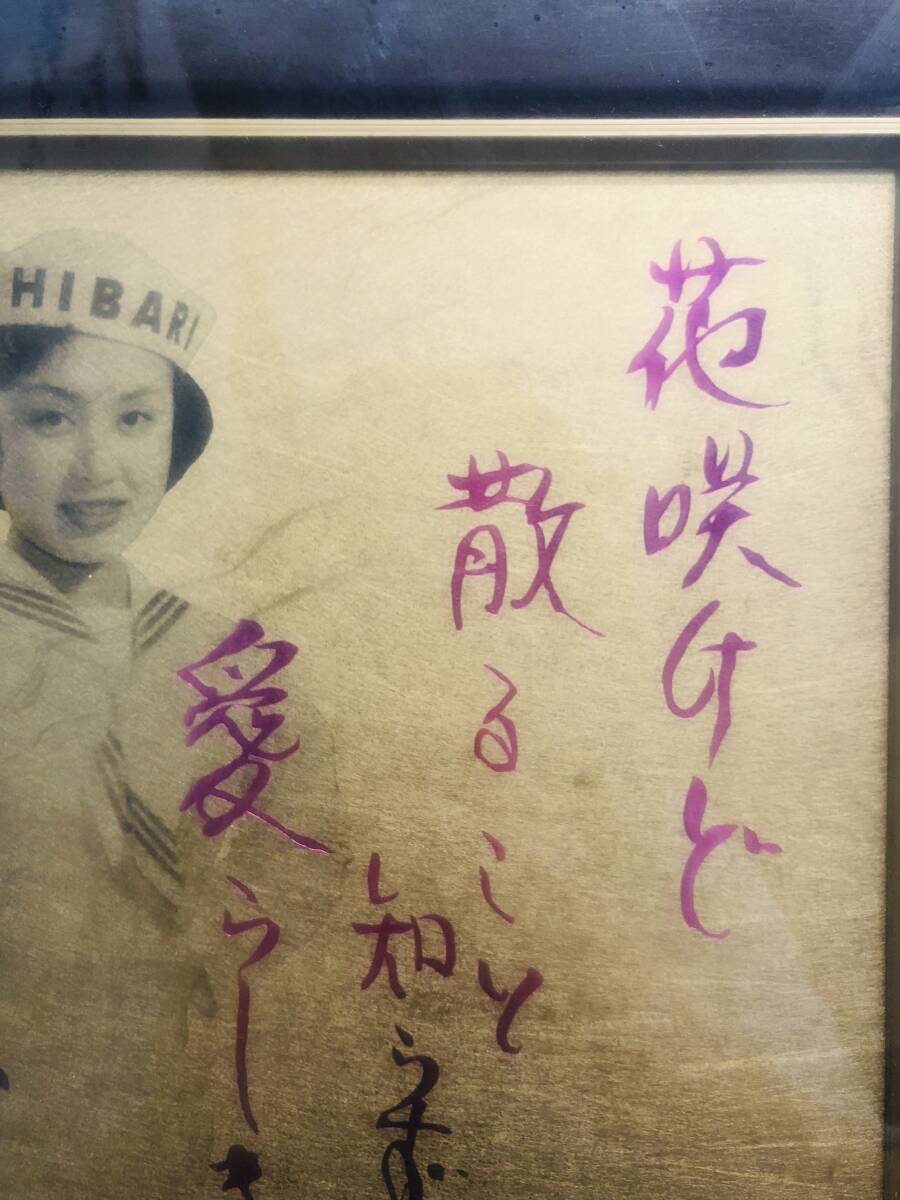 HIBARI
花咲けど
散ること
知らず
愛らしき